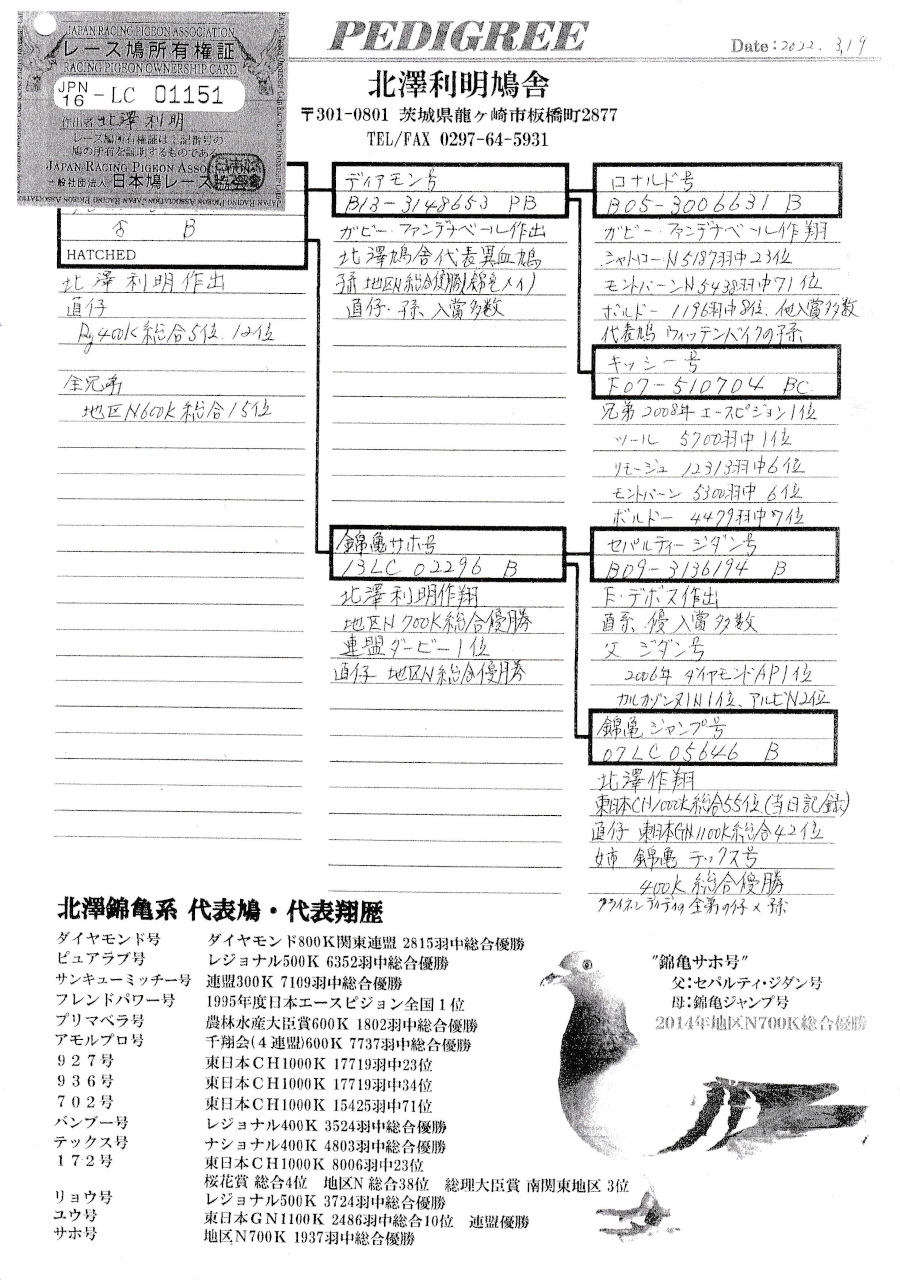 JAPAN RACING PIGEON ASSOCIATION
レース鳩所有権証
RACING PIGEON OWNERSHIP CARD
JPN 16 - LC 01151
作出者 北澤利明
レース鳩所有権証は上記番号の
鳩の所有を証明するものである
JAPAN RACING PIGEON ASSOCIATION
一般社団法人 日本鳩レース協会
PEDIGREE
Date:2022.3.19
北澤利明鳩舎
〒301-0801 茨城県龍ヶ崎市板橋町2877
TEL/FAX 0297-64-5931
♂ B
HATCHED
北澤利明作出
直仔
Rg400K総合5位、12位
全兄弟
地区N600K総合15位
ディアモン号
B13-3148653 PB
ガビー・ファンデナベール作出
北澤鳩舎代表異血鳩
孫 地区N総合優勝(錦亀メイ)
直仔・孫、入賞多数
錦亀サホ号
13LC 02296 B
北澤利明作翔
地区N 700K総合優勝
連盟ダービー1位
直仔 地区N総合優勝
ロナルド号
B05-3006631 B
ガビー・ファンデナベール作翔
シャトローN5187羽中23位
モントバーンN5438羽中71位
ボルドー 1196羽中8位、他入賞多数
代表鳩 ウィッテンバイクの孫
キッシー号
F07-510704 BC
兄弟2008年エースピジョン1位
ツール 5700羽中1位
リモージュ 12313羽中6位
モントバーン 5300羽中6位
ボルドー 4479羽中7位
セパルティージダン号
B09-3136194 B
F・デボス作出
直系、優入賞多数
父 ジダン号
2006年 ダイヤモンドAP1位
カルカソンヌIN1位、アルビN2位
錦亀ジャンプ号
07LC05646 B
北澤作翔
東日本CH1000K総合55位(当日記録)
直仔 東日本GN1100K総合42位
姉 錦亀テックス号
400K総合優勝
クライネンディディの全弟の仔×孫
北澤錦亀系 代表鳩・代表翔歴
ダイヤモンド号 ダイヤモンド800K関東連盟 2815羽中総合優勝
ピュアラブ号 レジョナル500K 6352羽中総合優勝
サンキューミッチー号 連盟300K 7109羽中総合優勝
フレンドパワー号 1995年度日本エースピジョン全国1位
プリマベラ号 農林水産大臣賞600K 1802羽中総合優勝
アモルプロ号 千翔会(4連盟)600K 7737羽中総合優勝
927号 東日本CH1000K 17719羽中23位
936号 東日本CH1000K 17719羽中34位
702号 東日本CH1000K 15425羽中71位
バンブー号 レジョナル400K 3524羽中総合優勝
テックス号 ナショナル400K 4803羽中総合優勝
172号 東日本CH1000K 8006羽中23位
桜花賞 総合4位 地区N 総合38位 総理大臣賞 南関東地区 3位
リョウ号 レジョナル500K 3724羽中総合優勝
ユウ号 東日本GN1100K 2486羽中総合10位 連盟優勝
サホ号 地区N700K 1937羽中総合優勝
"錦亀サホ号"
父:セパルティ・ジダン号
母:錦亀ジャンプ号
2014年地区N700K総合優勝